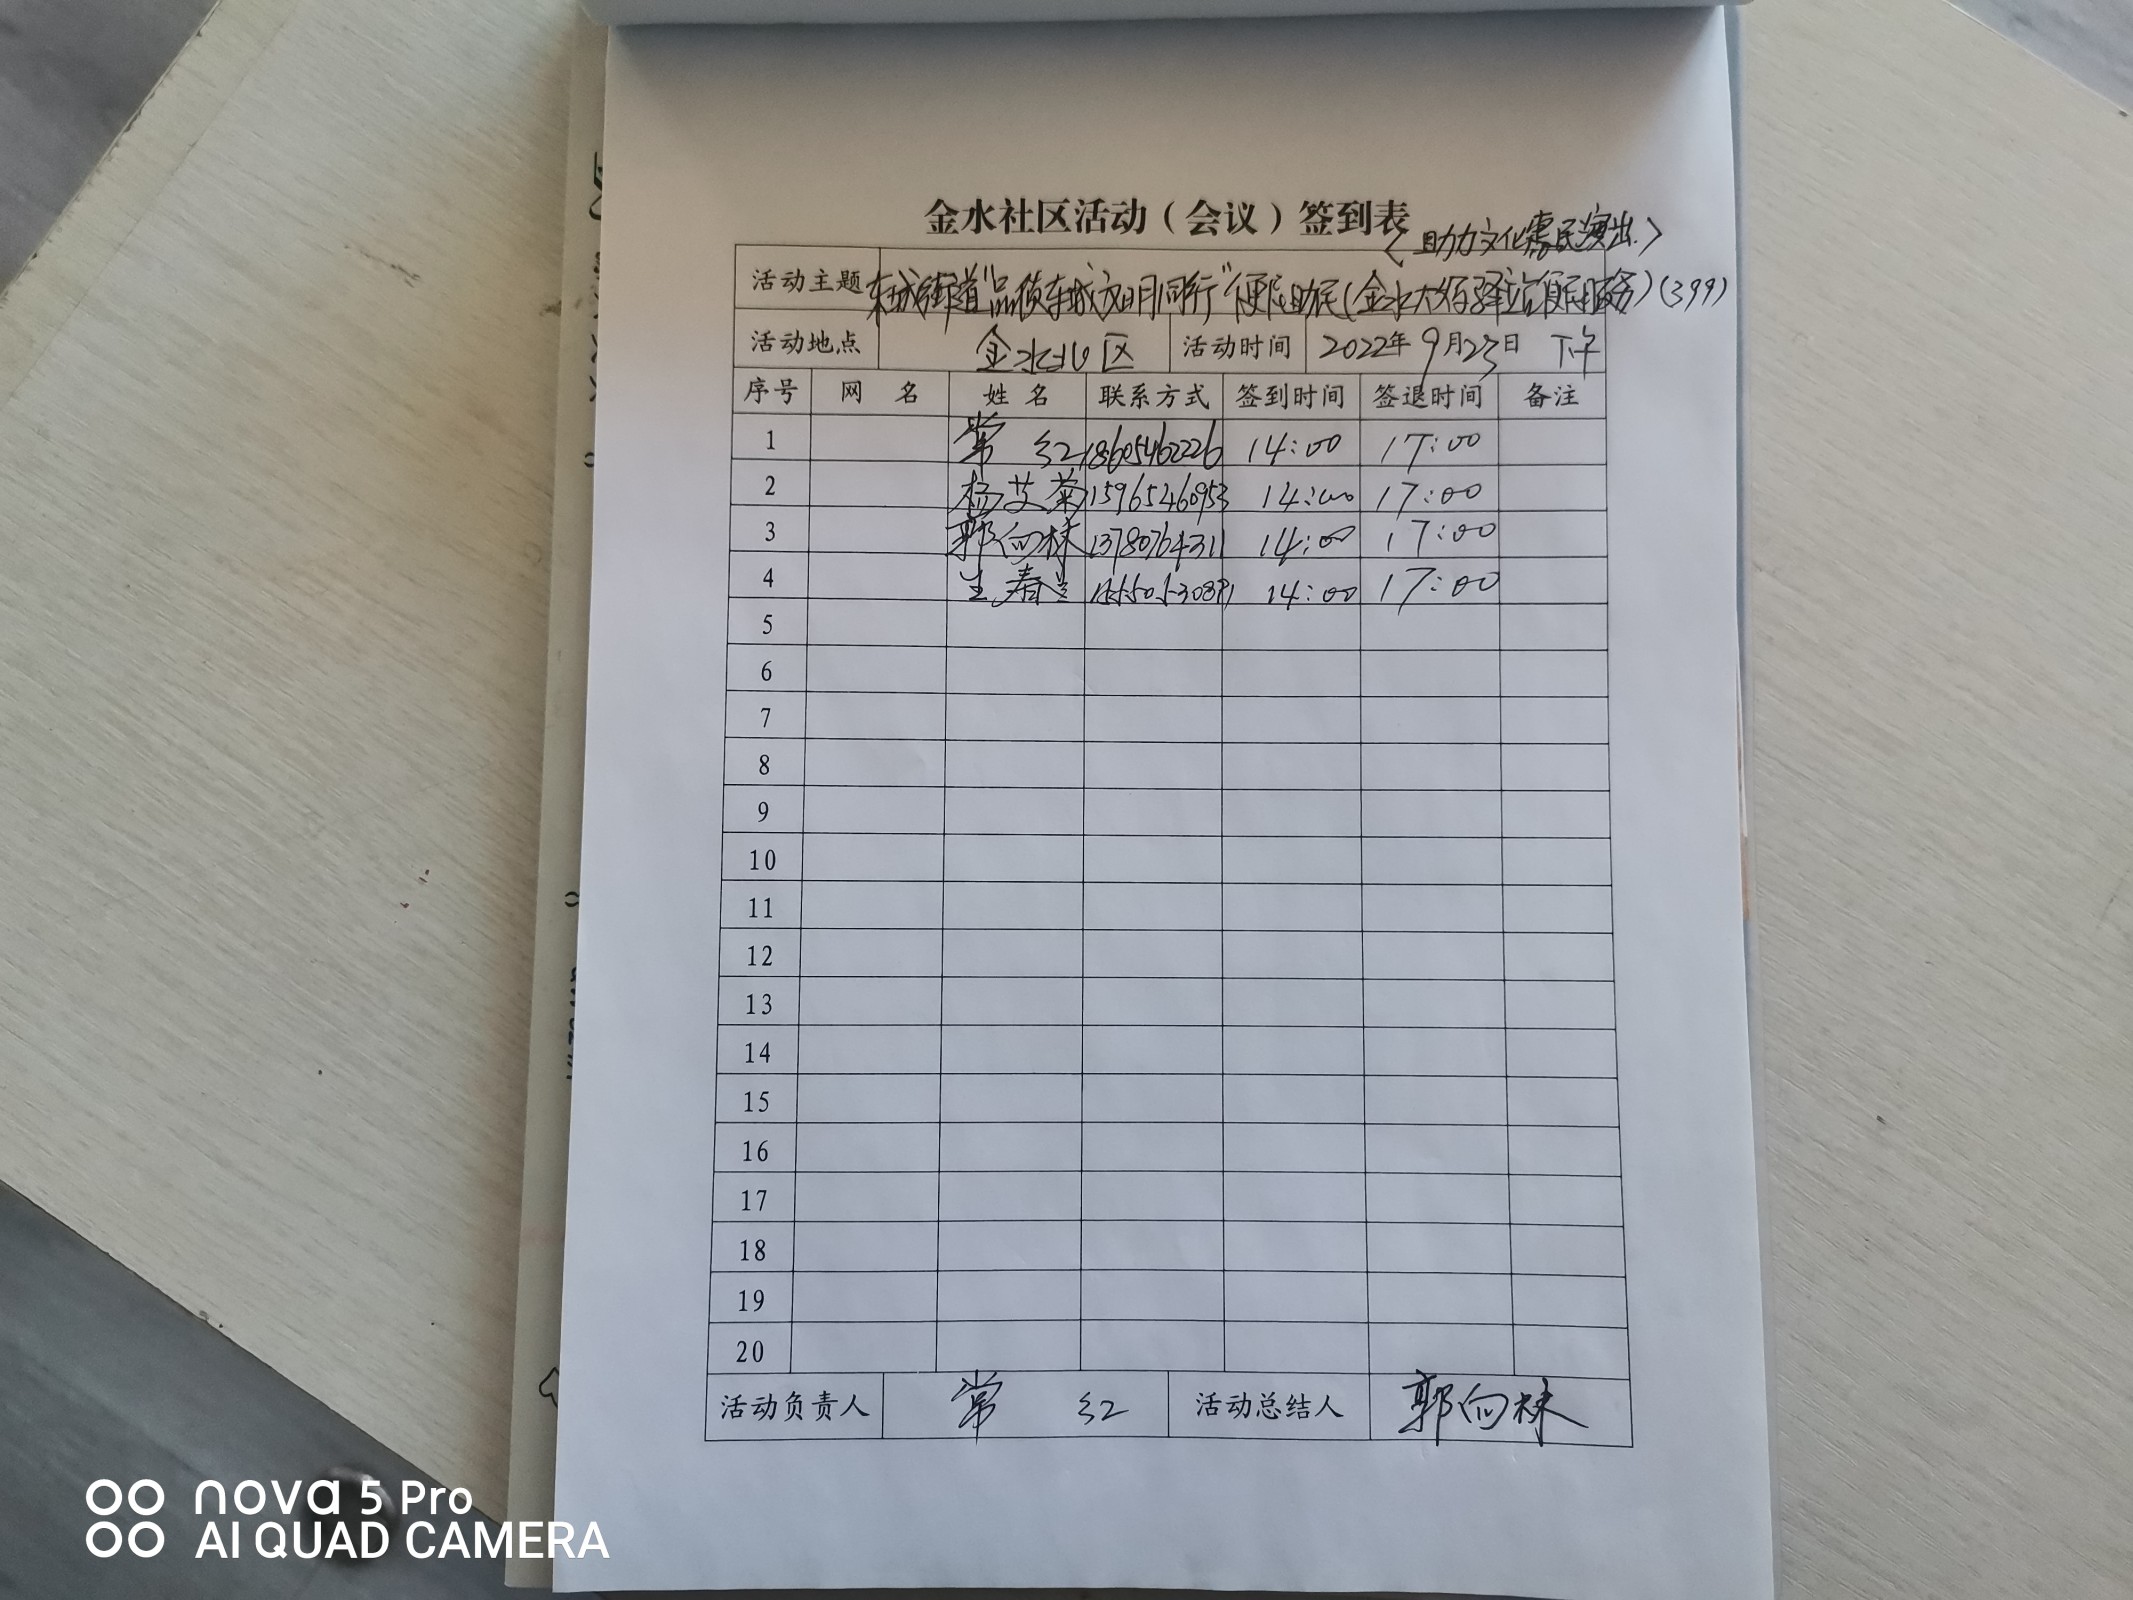 金水社区活动（会议）签到表
〈助力文化惠民演出〉
活动主题 东城街道"品质东城文明同行"便民助民(金水 驿站便民服务)(399)
活动地点 金水北区 活动时间 2022年9月23日 下午
序号 网 名 姓 名 联系方式 签到时间 签退时间 备注
1 常 红 18605462226 14:00 17:00
2 杨艾菊 15965460953 14:00 17:00
3 郭向林 13780764311 14:00 17:00
4 春兰 14:00 17:00
5
6
7
8
9
10
11
12
13
14
15
16
17
18
19
20
活动负责人 常 红 活动总结人 郭向林
nova 5 Pro
AI QUAD CAMERA